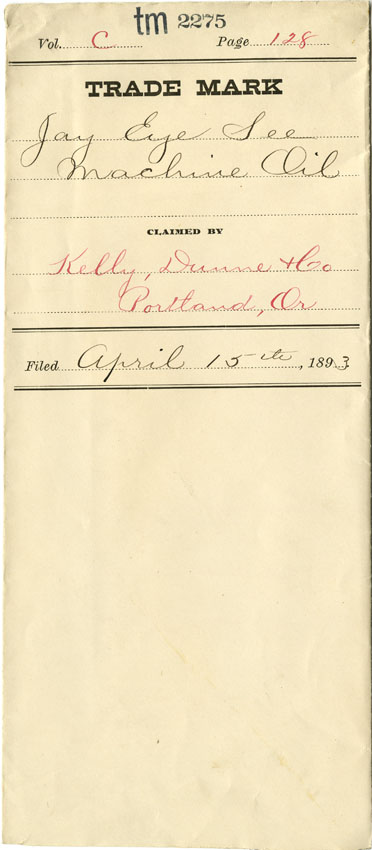 tm 2275
Vol. C Page 128
TRADE MARK
Jay Eye See
Machine Oil
CLAIMED BY
Kelly, Dunne & Co
Portland, Or
Filed April 15th, 1893